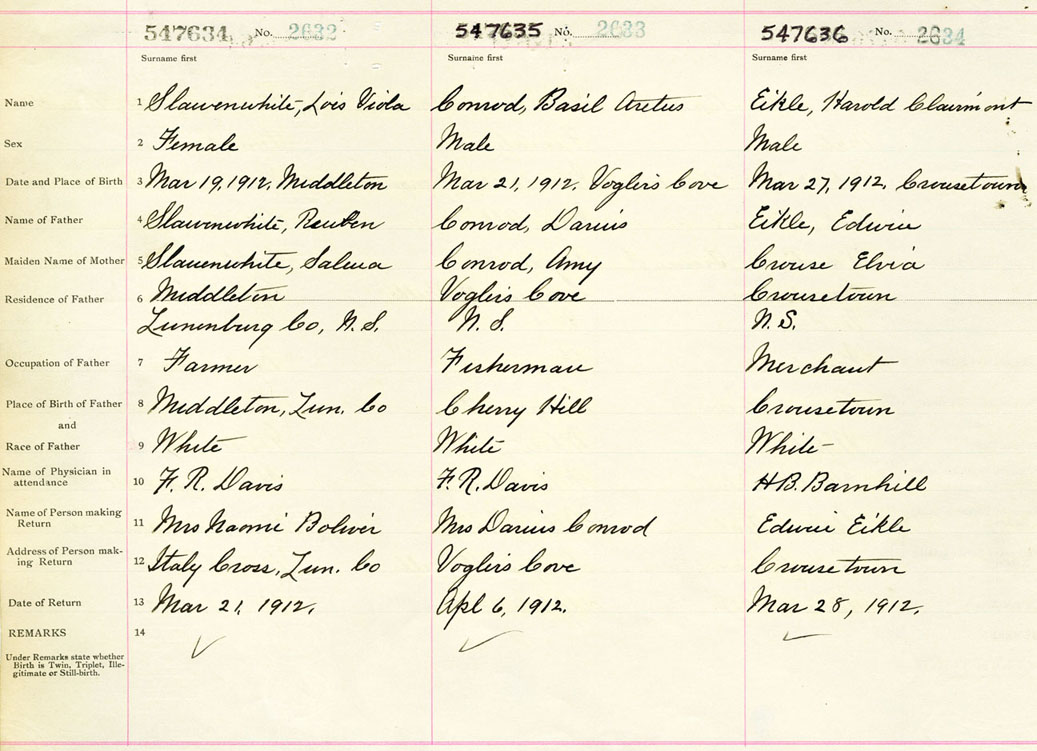 547634 No. 2632 547635 No. 2633 547636 No. 2634
Surname first Surname first Surname first
Name 1 Slauenwhite, Lois Viola Conrod, Basil Aretus Eikle, Harold Clairmont
Sex 2 Female Male Male
Date and Place of Birth 3 Mar 19, 1912, Middleton Mar 21, 1912, Voglers Cove Mar 27, 1912, Crousetown
Name of Father 4 Slauenwhite, Reuben Conrod, Darius Eikle, Edwin
Maiden Name of Mother 5 Slauenwhite, Salma Conrod, Amy Crouse Elvia
Residence of Father 6 Middleton Voglers Cove Crousetown
Lunenburg Co, N.S. N.S. N.S.
Occupation of Father 7 Farmer Fisherman Merchant
Place of Birth of Father 8 Middleton, Lun. Co Cherry Hill Crousetown
and
Race of Father 9 White White White
Name of Physician in
attendance 10 F. R. Davis F.R. Davis H B. Barnhill
Name of Person making
Return 11 Mrs Naomi Boliver Mrs Darius Conrod Edwin Eikle
Address of Person mak-
ing Return 12 Italy Cross, Lun. Co Voglers Cove Crousetown
Date of Return 13 Mar 21, 1912. Apl 6, 1912. Mar 28, 1912.
REMARKS 14
Under Remarks state whether
Birth is Twin, Triplet, Ille-
gitimate or Still-birth.